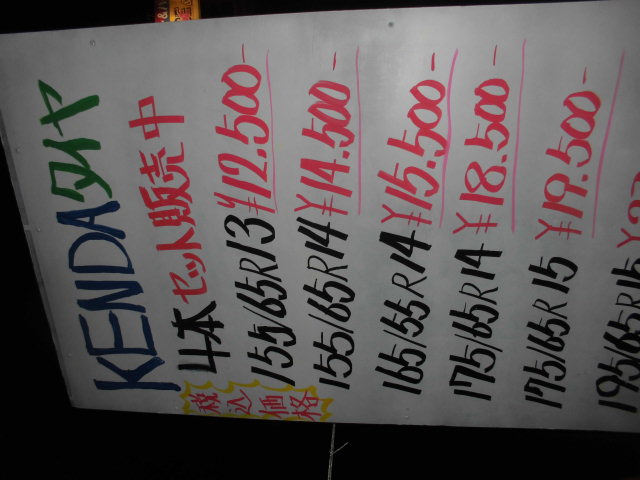 KENDAタイヤ
4本セット販売中
税込価格
155/65R13 ¥12.500-
155/65R14 ¥14.500-
165/55R14 ¥15.500-
175/65R14 ¥18.500-
175/65R15 ¥19.500-
195/65R15